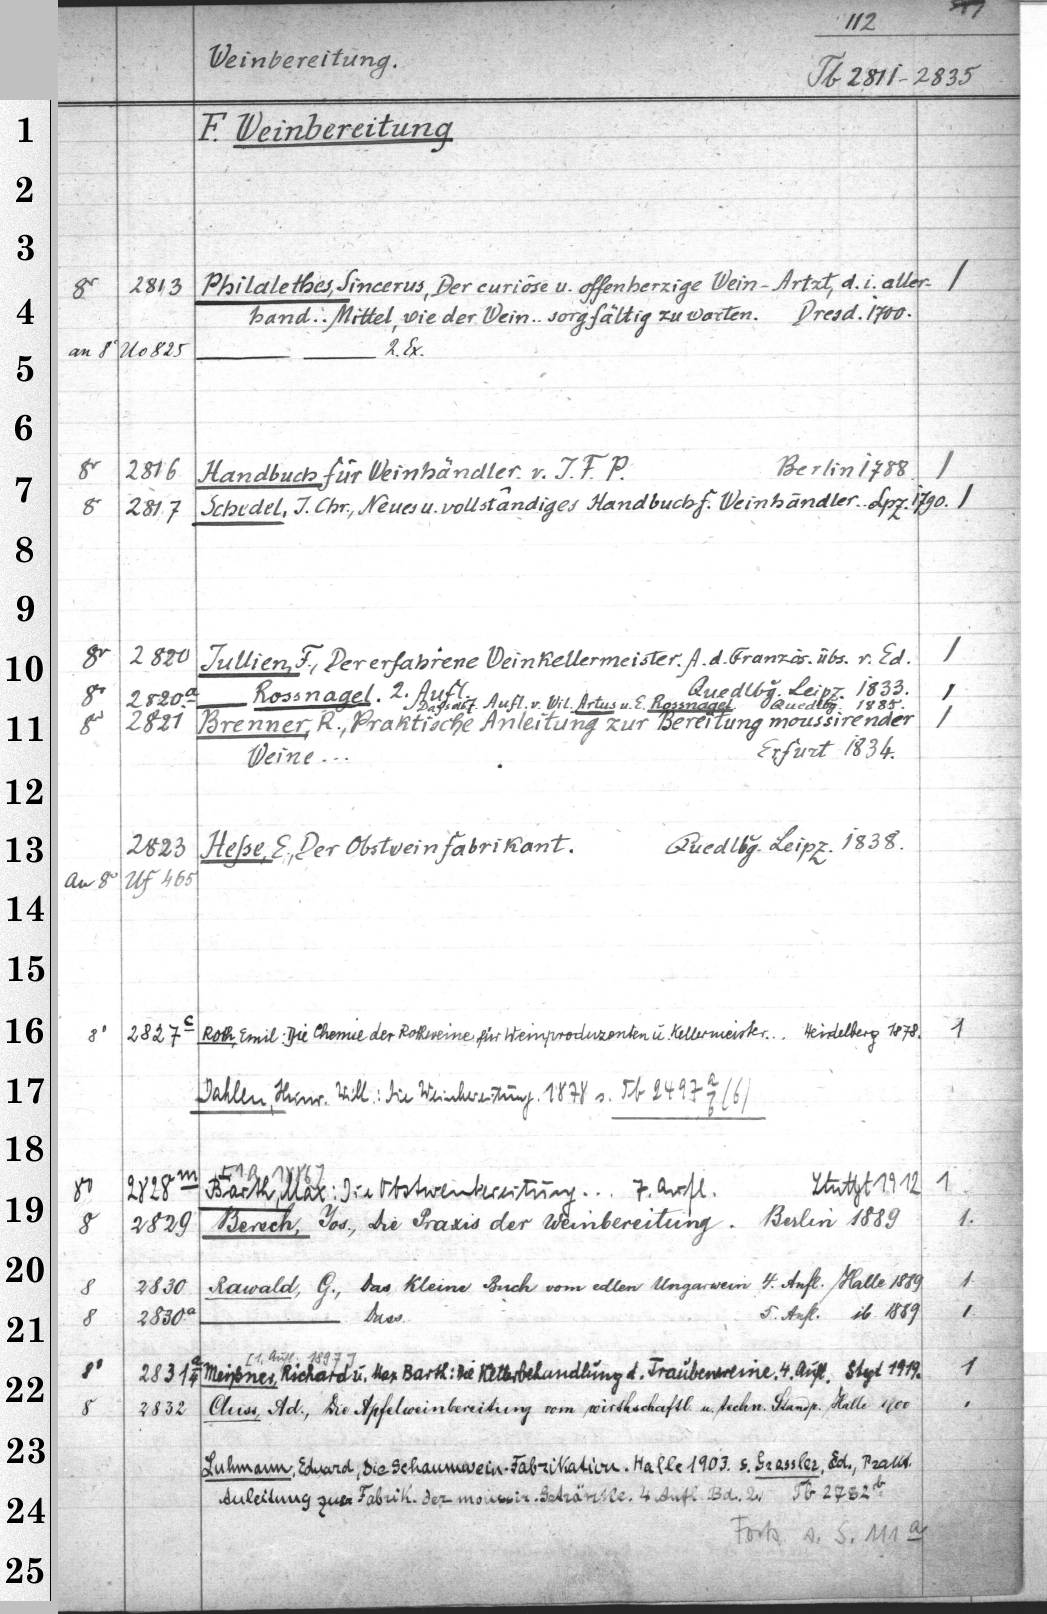 112
Weinbereitung.
Tb 2811-2835
1 F. Weinbereitung
2
3
8° 2813 Philalethes, Sincerus, Der curiöse u. offenherzige Wein-Artzt, d. i. aller- 1
4 hand.. Mittel, wie der Wein.. sorgfältig zu warten. Dresd. 1700.
an 8° Uo 825 2. Ex.
5
6
8° 2816 Handbuch für Weinhändler. v. J. F. P. Berlin 1788. 1
7
8° 2817 Schedel, J. Chr., Neues u. vollständiges Handbuch f. Weinhändler.. Lpz. 1790. 1
8
9
10 8° 2820 Jullien, F., Der erfahrene Weinkellermeister. A. d. Französ. übs. v. Ed. 1
Rossnagel. 2. Aufl. Quedlbg. Leipz. 1833.
8° 2820.a Aufl. v. Wil. Artus u. E. Rossnagel Quedlbg. 1885. 1
11 8° 2821 Brenner, R., Praktische Anleitung zur Bereitung moussirender 1
Weine... Erfurt 1834.
12
13 2823 Heße, E., Der Obstweinfabrikant. Quedlbg. Leipz. 1838.
An 8° Uf 465
14
15
16 8° 2827c Roth, Emil: Die Chemie der Rothweine für Weinproduzenten u. Kellermeister... Heidelberg 1878. 1
17 Dahlen, Heinr. Wilh.: Die Weinbereitung. 1878 s. Tb 2497 a/b (6)
18
[1. A. 1886?]
8° 2828m Barth, Max: Die Obstweinbereitung... 7. Aufl. Stuttgt 1912 1
19 8° 2829 Bersch, Jos., Die Praxis der Weinbereitung. Berlin 1889 1.
20 8 2830 Rawald, G., Das kleine Buch vom edlen Ungarwein 4. Aufl. Halle 1889 1
21 8 2830a Dass. 5. Aufl. ib 1889 1
[1. Aufl. 1897?]
8° 2831 Meißner, Richard u. Max Barth: Die Kellerbehandlung d. Traubenweine. 4. Aufl. Stgt 1919. 1
22 8 2832 Cluss, Ad., Die Apfelweinbereitung vom wirthschaftl. u. techn. Standp. Halle 1900
23 Luhmann, Eduard, Die Schaumwein-Fabrikation. Halle 1903. s. Grassler, Ed., Prakt.
24 Anleitung zur Fabrik. der moussir. Getränke. 4 Aufl. Bd. 2. Tb 2782b
Forts. s. S. 111a
25